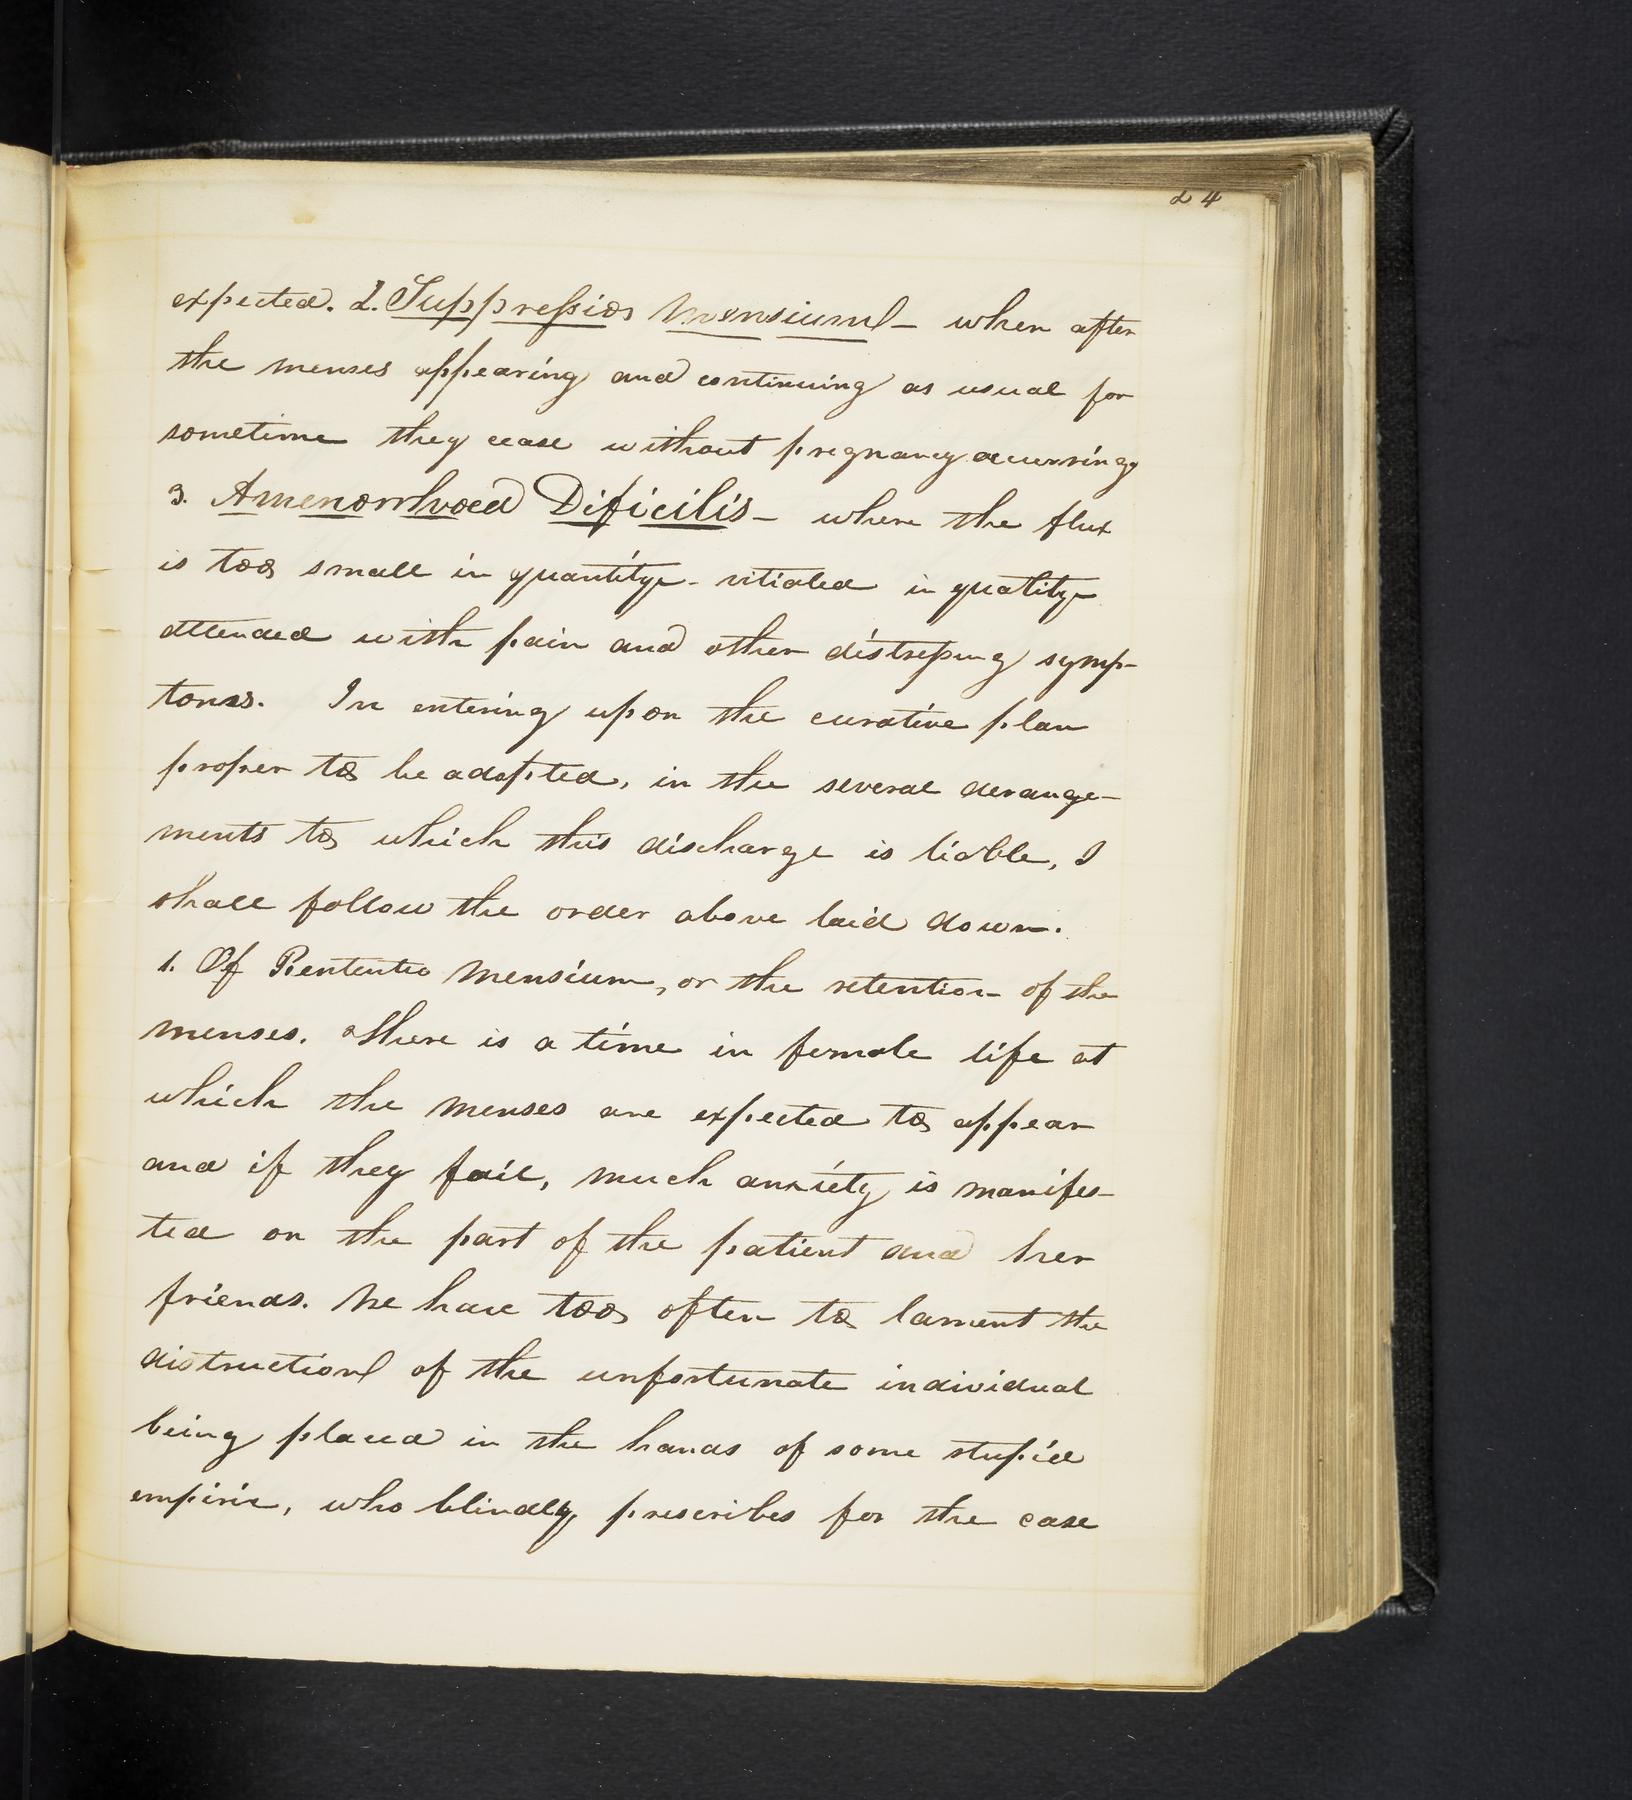 24
expected. 2. Suppressio Mensium - when after
the menses appearing and continuing as usual for
sometime they cease without pregnancy occurring
3. Amenorrhoea Dificilis - where the flux
is too small in quantity - vitiated in quality
attended with pain and other distressing symp-
toms. In entering upon the curative plan
proper to be adopted, in the several derange-
ments to which this discharge is liable, I
shall follow the order above laid down.
1. Of Rententio Mensium, or the retention of the
menses. There is a time in female life at
which the menses are expected to appear
and if they fail, much anxiety is manifes-
ted on the part of the patient and her
friends. We have too often to lament the
distruction of the unfortunate individual
being placed in the hands of some stupid
empiric, who blindly prescribes for the case